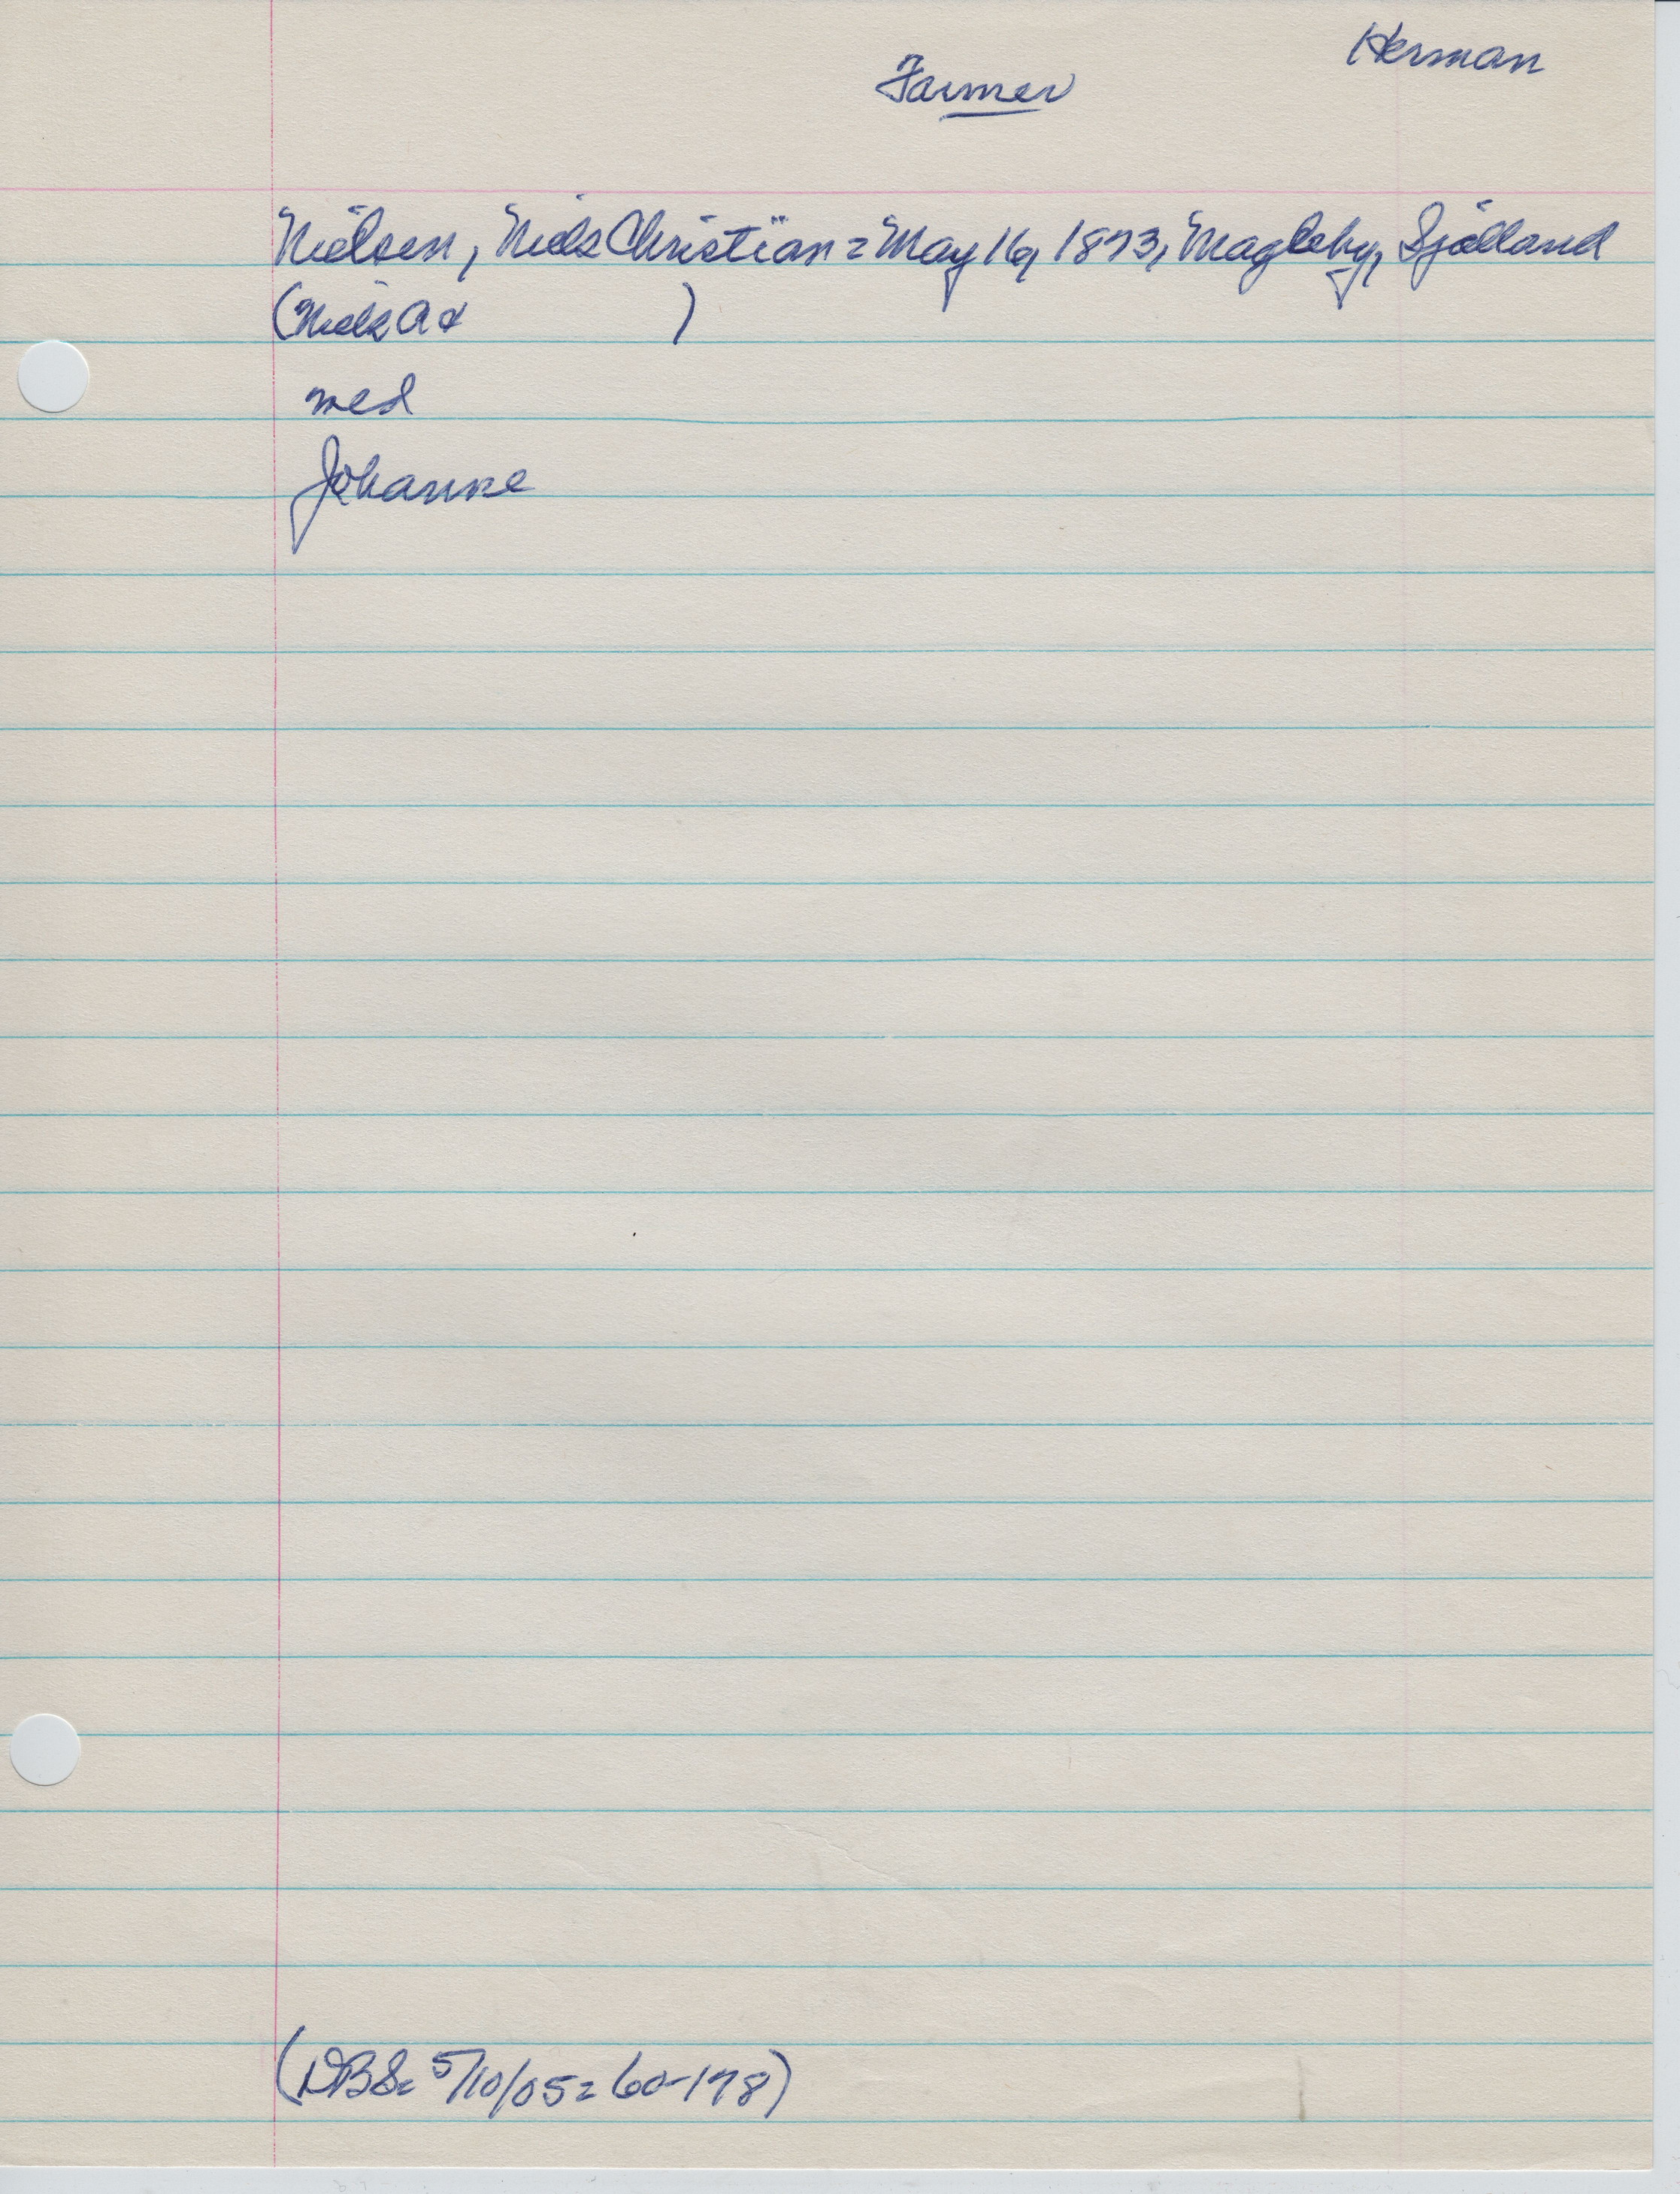 Herman
Farmer
Nielsen, Niels Christian = May 16, 1873, Magleby, Sjælland
(Niels A &           )
med
Johanne
(DBS= 5/10/05= 60-178)